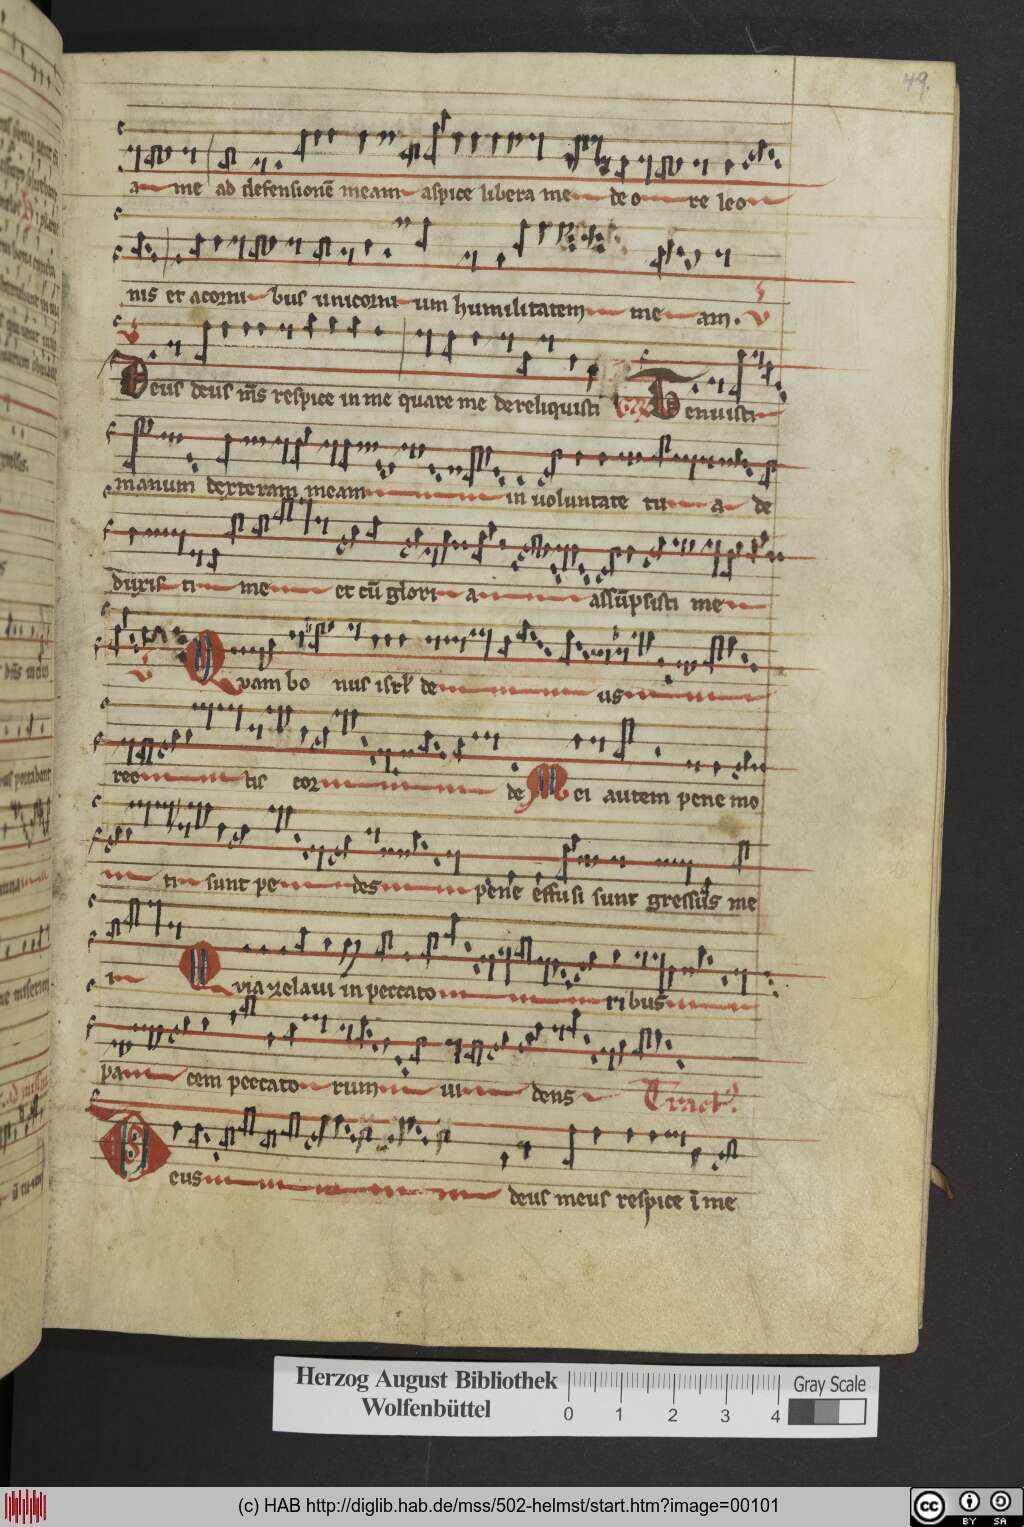 49.
a me ad defensionē meam aspice libera me de o re leo
nis et acorni bus unicorni um humilitatem me am. V
Deus deus m̄s respice in me quare me dereliquisti Tenuisti
manum dexteram meam in voluntate tu a de
duxis ti me et cū glori a assūpsisti me
V Quam bo nus isrl̄ de us
rec tis cor de Mei autem pene mo
ti sunt pe des pene effusi sunt gressus me
i Quia zelavi in peccato ribus
pa cem peccato rum vi dens Tract̄.
Deus deus meus respice ī me
Herzog August Bibliothek
Wolfenbüttel
0 1 2 3 4
Gray Scale
(c) HAB http://diglib.hab.de/mss/502-helmst/start.htm?image=00101
cc BY SA